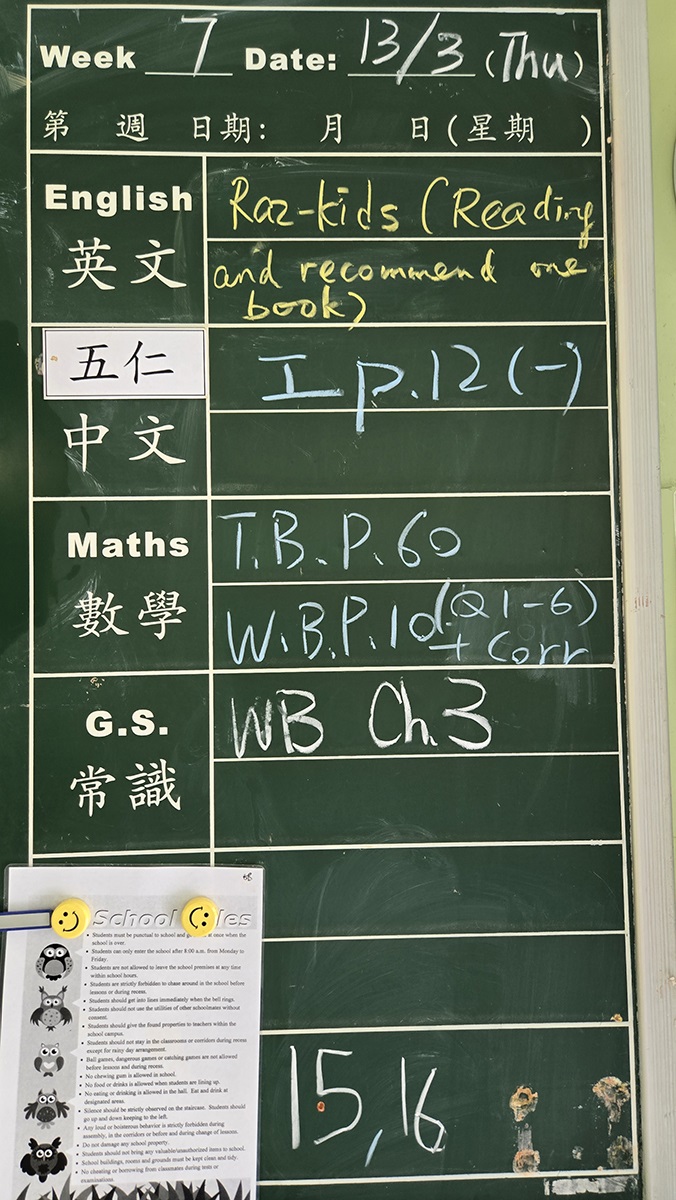 Week 7 Date: 13/3 (Thu)
第 週 日期: 月 日(星期 )
English
英文
Raz-kids (Reading
and recommend one
book)
五仁
中文
工 p.12 (一)
Maths
數學
T.B. P. 60
W.B. P. 10 (Q1-6)
+ Corr
G.S.
常識
WB Ch. 3
School les
Students must be punctual to school and at once when the
school is over.
Students can only enter the school after 8:00 a.m. from Monday to
Friday.
Students are not allowed to leave the school premises at any time
within school hours.
Students are strictly forbidden to chase around in the school before
lessons or during recess.
Students should get into lines immediately when the bell rings.
Students should not use the utilities of other schoolmates without
consent.
Students should give the found properties to teachers within the
school campus.
Students should not stay in the classrooms or corridors during recess
except for rainy day arrangement.
Ball games, dangerous games or catching games are not allowed
before lessons and during recess.
No chewing gum is allowed in school.
No food or drinks is allowed when students are lining up.
No eating or drinking is allowed in the hall. Eat and drink at
designated areas.
Silence should be strictly observed on the staircase. Students should
go up and down keeping to the left.
Any loud or boisterous behavior is strictly forbidden during
assembly, in the corridors or before and during change of lessons.
Do not damage any school property.
Students should not bring any valuable/unauthorized items to school.
School buildings, rooms and grounds must be kept clean and tidy.
No cheating or borrowing from classmates during tests or
examinations.
15, 16